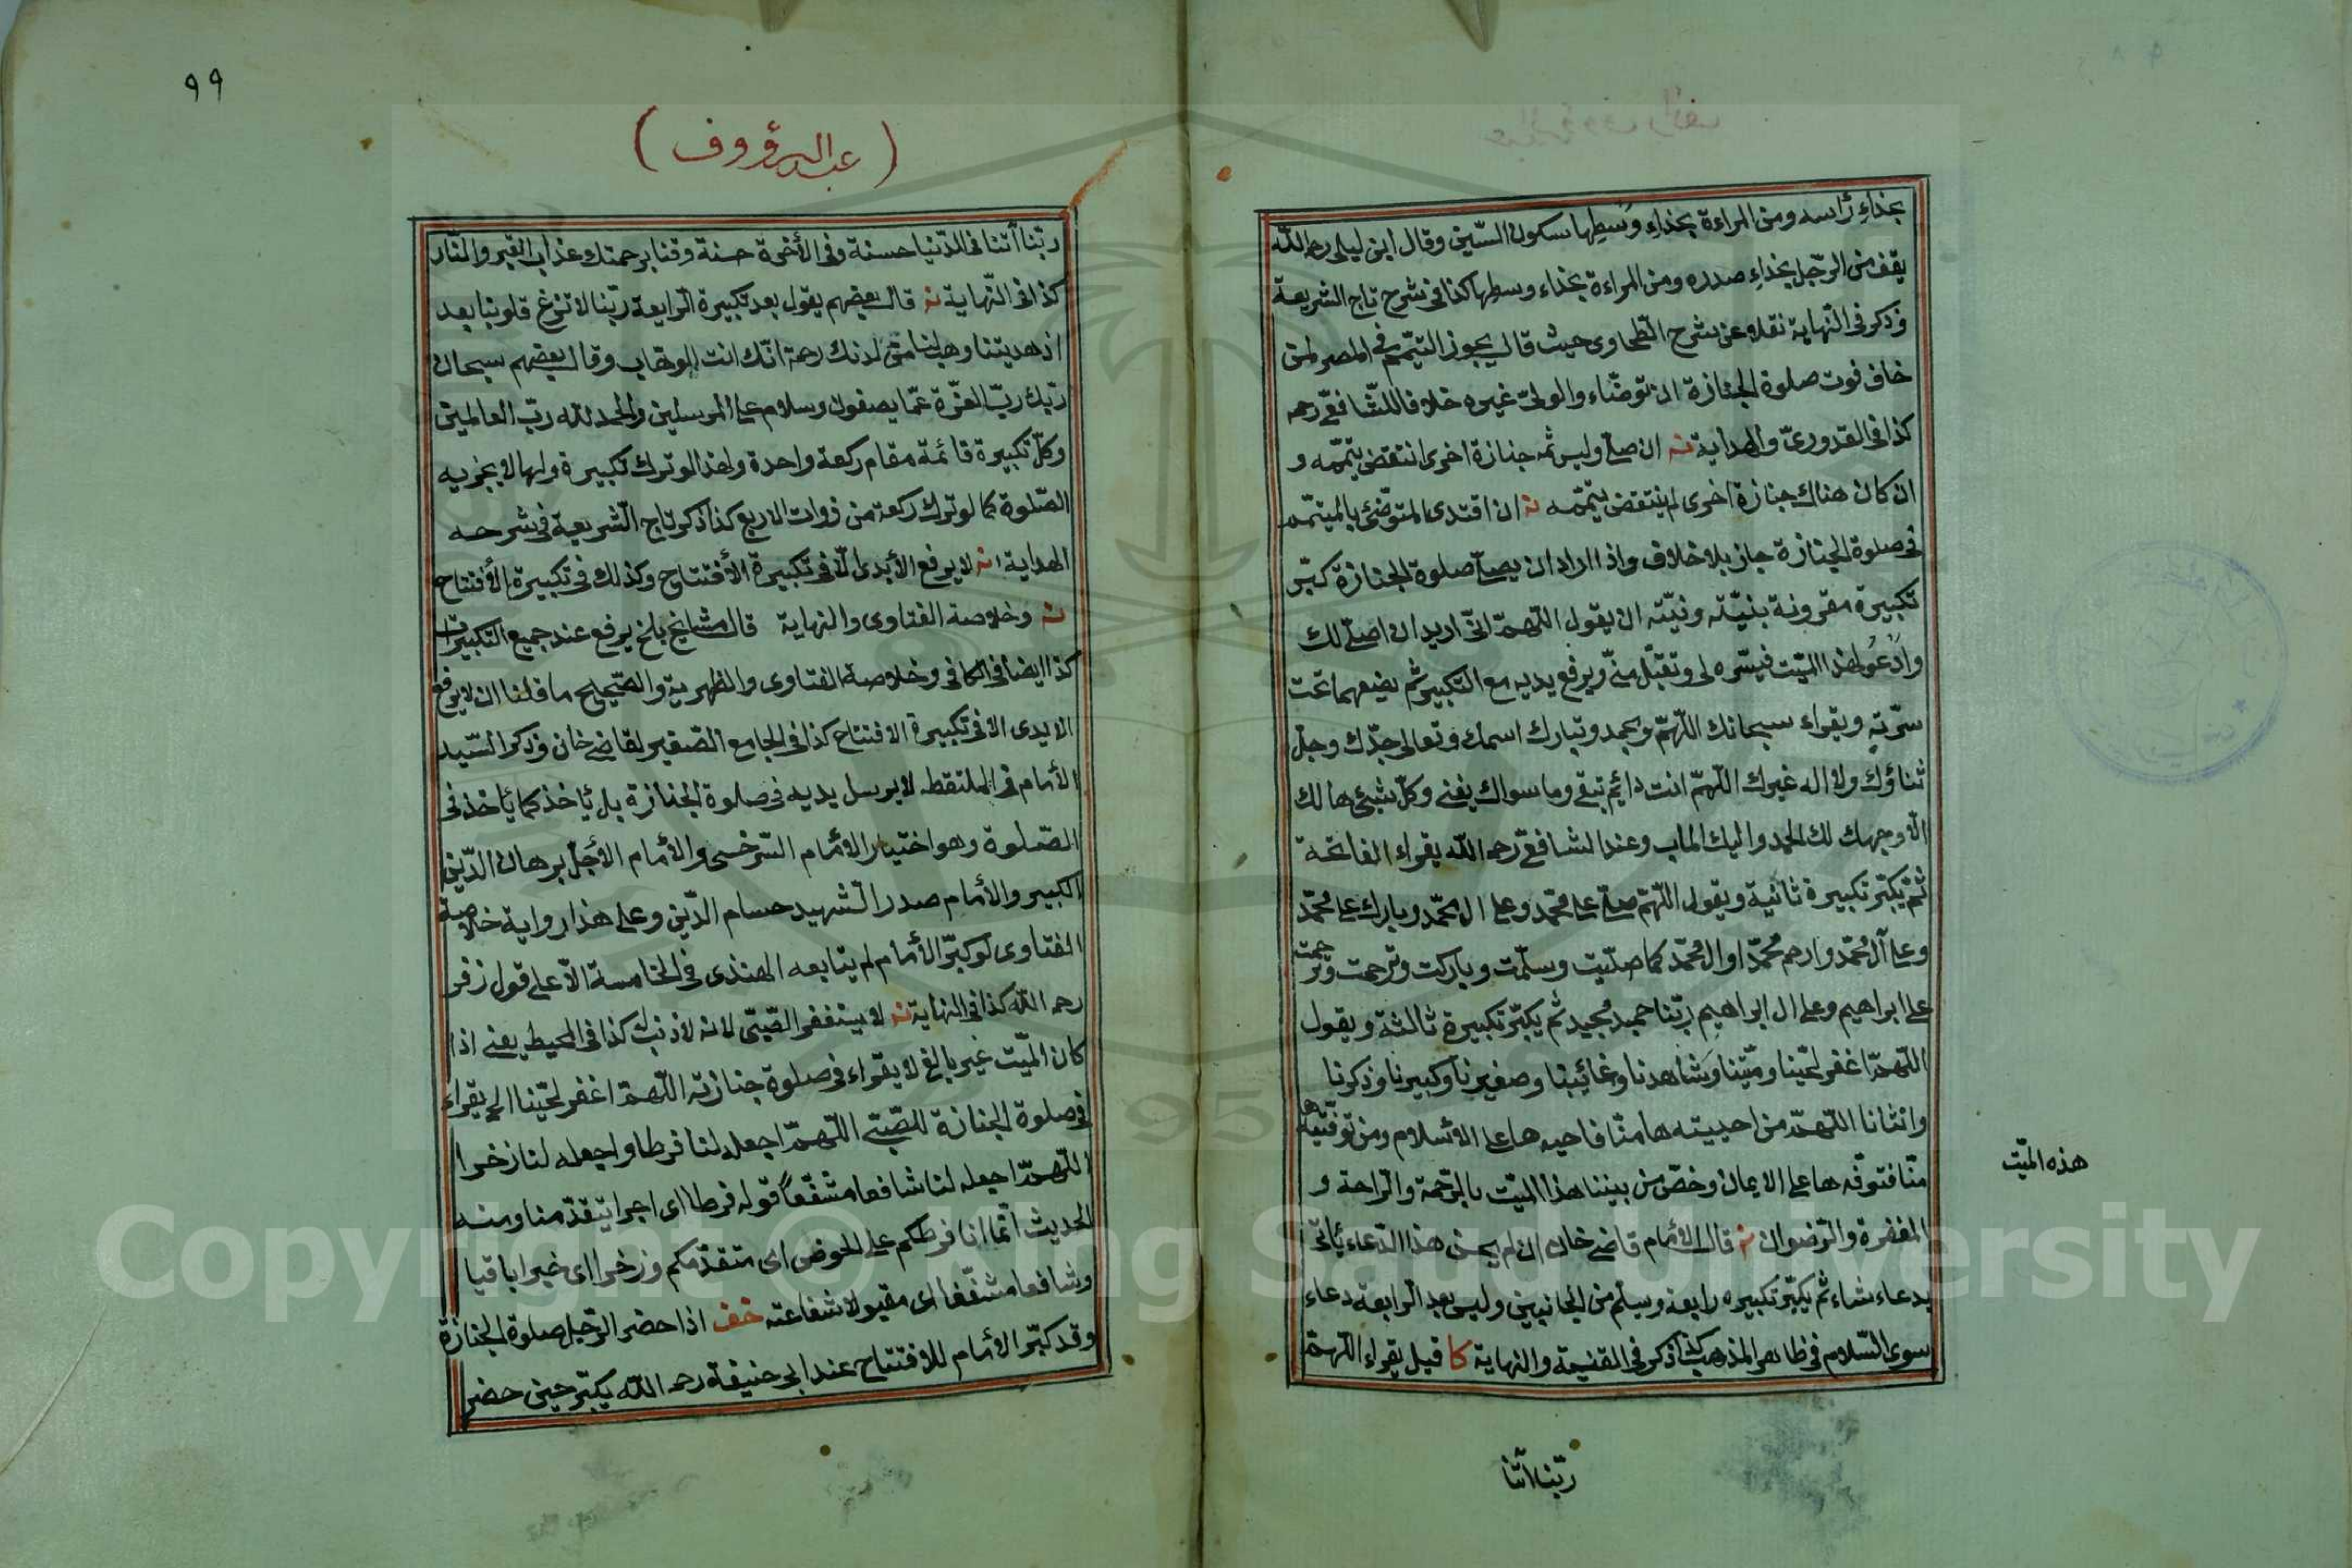 بحذاءِ رٔاسه ومن المراءة بحذاءِ وسْطِها بسكون السّين وقال ابن ليلى رحمه اللّه
يقف من الرّجل بحذاءِ صدره ومن المراءة بحذاء وسطها كذا فى شرح تاج الشريعة
وذكر فى النّهاية نقلا عن شرح الطّحاوى حيث قال يجوز التيّمم فى المصر لمن
خاف فوت صلوة الجنازة ان توضّاء والولىّ غيره خلافا للشّافعىّ رحمه
كذا فى القدورىّ والهداية نه ان صلّى وليس ثمه جنازة اخرى انتقض تيممّه و
ان كان هناك جنازة اخرى لم ينتقض تيممّه نه ان اقتدى المتوضّئ بالميتمّم
فى صلوة الجنازة جاز بلا خلاف واذا اراد ان يصلّى صلوة الجنازة كبّر
تكبيرة مقرونة بنيّته ونيّته ان يقول اللّهمّ انّى اريد ان اصلّى لك
وادْعُو لهذا الميّت فيسّره لى وتقبّل منّى ويرفع يديه مع التكبير ثم يضعهما تحت
سرّته ويقراء سبحانك اللّهمّ وبحمد وتبارك اسمك وتعالى جدّك وجلّ
ثناؤك ولا اله غيرك اللّهمّ انت دائم تبقى وما سواك يفنى وكلّ شيئ هالك
الّا وجهك لك الحمد واليك الماب وعند الشافعىّ رحمه اللّه يقراء الفاتحة
ثم يكبّر تكبيرة ثانية ويقول اللّهمّ صلّ على محمد وعلى ال محمّد وبارك على محمّد
وعلى آل محمّد وارحم محمّدا وال محمّد كما صلّيت وسلّمت وباركت وترحمت ورحمت
على ابراهيم وعلى ال ابراهيم ربّنا حميد مجيد ثم يكبّر تكبيرة ثالثة ويقول
اللّهمّ اغفر لحيّنا وميّتنا وشاهدنا وغائبنا وصغيرنا وكبيرنا وذكرنا
وانثانا اللّهمّ من احييته ها منّا فاحيه ها على الاسلام ومن توفّيته ها
منّا فتوفّه ها على الايمان وخصّ من بيننا هذا الميّت بالرّحمة والرّاحة و
المغفرة والرّضوان نه قال الامام قاضى خان ان لم يحسن هذا الدّعاء ئاتى
بدعاء شاء ثم يكبّر تكبيره رابعة ويسلّم من الجانبين وليس بعد الرابعة دعاء
سوى السّلام فى ظاهر المذهب كذا ذكر فى المقنيعة والنهاية كا قيل يقراء اللّهمّ
هذه الميّت
ربّنا اتنا
٩٩
(عبد الرؤوف)
ربّنا آتنا فى الدّنيا حسنة وفى الأخرة حسنة وقنا برحمتك عذاب القبر والنّار
كذا فى النّهاية نه قال بعضهم يقول بعد تكبيرة الرابعة ربّنا لا تزغ قلوبنا بعد
اذ هديتنا وهب لنا من لدنك رحمة انّك انت الوهّاب وقال بعضهم سبحان
ربّك ربّ العزّة عمّا يصفون وسلام على المرسلين والحمد لله ربّ العالمين
وكلّ تكبيرة قائمة مقام ركعة واحدة ولهذا لو ترك تكبيرة ولها لا يجزيه
الصّلوة كما لو ترك ركعة من ذوات الاربع كذا ذكر تاج الشريعة فى شرحه
الهداية نه لا يرفع الأيدى الّا فى تكبيرة الأفتتاح وكذلك فى تكبيرة الأفتتاح
نه وخلاصة الفتاوى والنهاية قال مشايخ بلخ يرفع عند جميع التكبيرات
كذا ايضا فى الكافى وخلاصة الفتاوى والظهرية والصّحيح ما قلنا ان لا يرفع
الايدى الا فى تكبيرة الافتتاح كذا فى الجامع الصّغير لقاضى خان وذكر السّيد
الأمام فى الملتقطه لا يرسل يديه فى صلوة الجنازة بل ئاخذ كما ئاخذ فى
الصّلوة وهو اختيار الأمام السّرخسى والأمام الأجلّ برهان الدّين
الكبير والأمام صدر الشهيد حسام الدّين وعلى هذا رواية خلاصة
الفتاوى لو كبّر الأمام لم يتابعه المقتدى فى الخامسة الّا على قول زفر
رحمه اللّه كذا فى النهاية نه لا يستغفر الصّبّى لانه لا ذنب له كذا فى المحيط يعنى اذا
كان الميّت غير بالغ لا يقراء فى صلوة جنازته اللّهمّ اغفر لحيّنا الخ يقراء
فى صلوة الجنازة للصّبّى اللّهمّ اجعله لنا فرطا واجعله لنا ذخرا
اللّهمّ اجعله لنا شافعا مشفّعاً قوله فرطا اى اجرا يتقدّمنا ومنه
الحديث انّما انا فرطكم على الحوض اى متقدّمكم وذخرا اى خيرا باقيا
وشافعا مشفّعا اى مقبولا شفاعته خف اذا حضر الرّجل صلوة الجنازة
وقد كبّر الأمام للافتتاح عند ابى حنيفة رحمه اللّه يكبّر حين حضر
Copyright © King Saud University